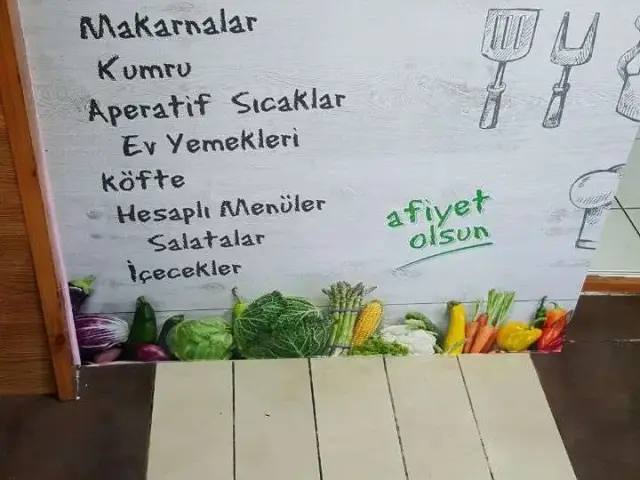 Makarnalar
Kumru
Aperatif Sıcaklar
Ev Yemekleri
Köfte
Hesaplı Menüler
Salatalar
İçecekler
afiyet
olsun